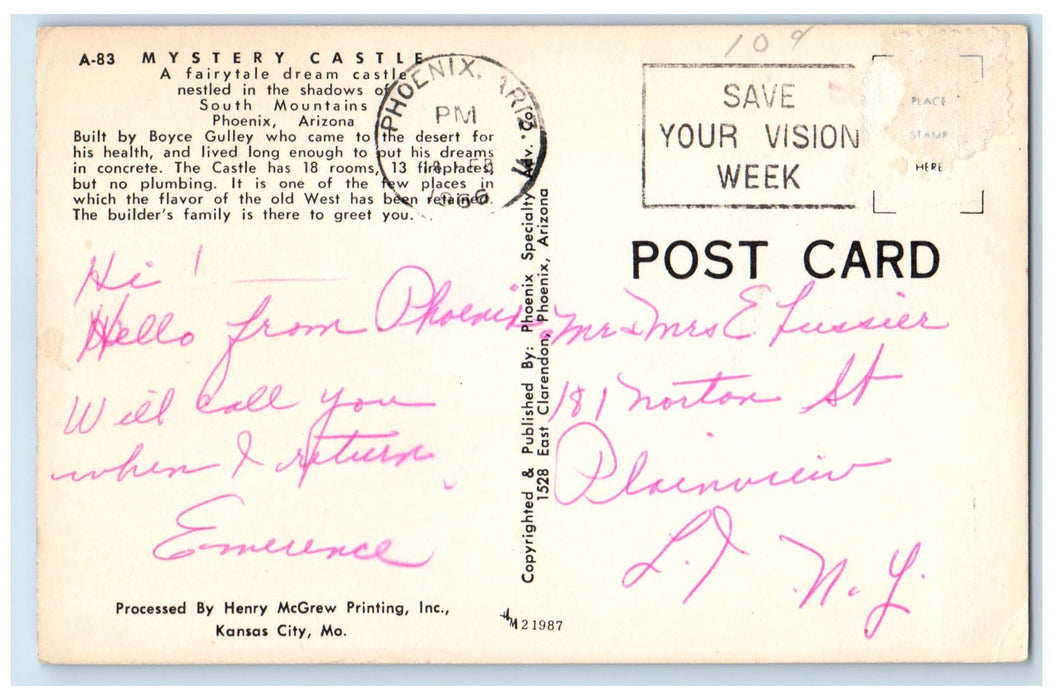 A-83 MYSTERY CASTLE
A fairytale dream castle
nestled in the shadows of
South Mountains
Phoenix, Arizona
Built by Boyce Gulley who came to the desert for
his health, and lived long enough to put his dreams
in concrete. The Castle has 18 rooms, 13 fireplaces,
but no plumbing. It is one of the few places in
which the flavor of the old West has been retained.
The builder's family is there to greet you.
PHOENIX, ARIZ.
PM
FEB
1966
SAVE
YOUR VISION
WEEK
10¢
PLACE
STAMP
HERE
POST CARD
Hi!
Hello from Phoenix.
Will call you
when I return
Emerence
Mr & Mrs E Lussier
181 Norton St
Plainview
L.I N.Y.
Copyrighted & Published By: Phoenix Specialty Adv. Co.
1528 East Clarendon, Phoenix, Arizona
Processed By Henry McGrew Printing, Inc.,
Kansas City, Mo.
M21987